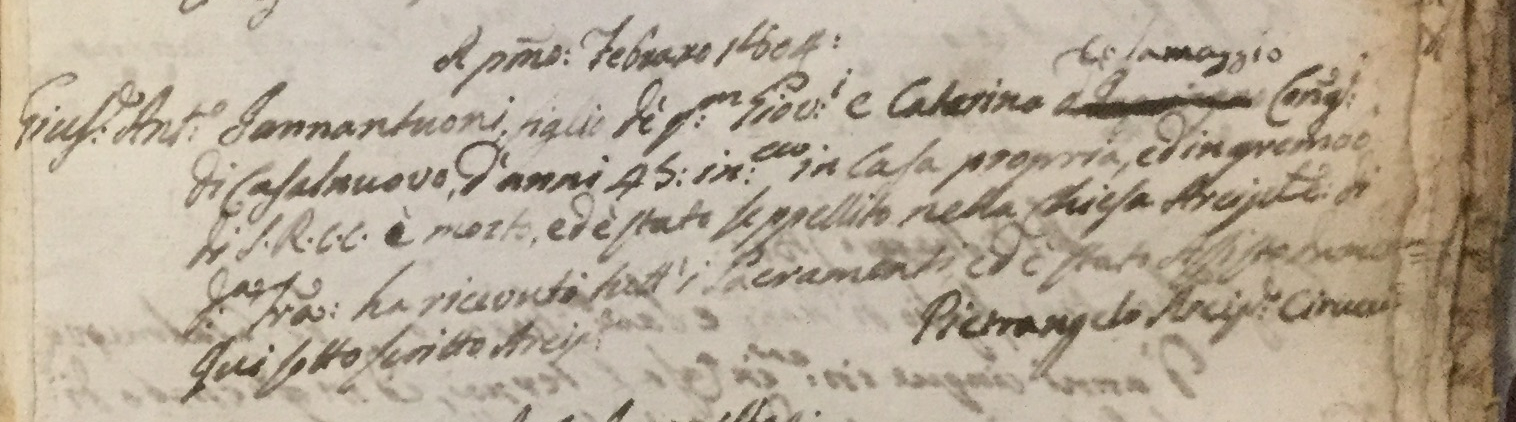 A pmo: Febraro 1804:
di Lamaggio
Gius.e Ant.o Iannantuoni, figlio di q.m Giov: e Caterina Con.gi:
di Casalnuovo, d'anni 45: in: in Casa propria, ed in gremio
di S. R. C. C. è morto, ed è stato seppellito nella Chiesa Arcip.le: di
q.sta Tra: ha ricevuto tutt'i Sacramenti, ed è stato Assisto
qui sotto scritto Arcip.
Pietrangelo Arcip.